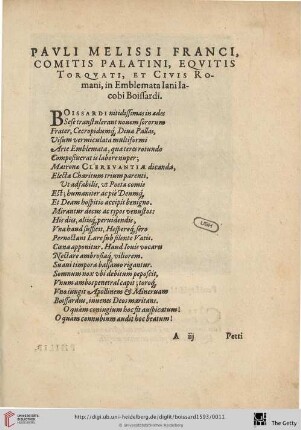 PAVLI MELISSI FRANCI,
COMITIS PALATINI, EQVITIS
TORQVATI, ET CIVIS RO-
mani, in Emblemata Iani Ia-
cobi Boissardi.
BOISSARDI nitidissimas in ædes
Sese transtulerant nouem sororum
Frater, Cecropidumq́; Diua Pallas,
Visum vermiculata multiformi
Arte Emblemata, quæ teres rotundo
Compositor erat is labore nuper;
Matronæ CLERVANTIÆ dicanda,
Electa Charitum trium parenti.
Vt adfabilis, vt Poeta comis
Est; humaniter ac piè Deumq́;
Et Deam hospitio accipit benigno.
Mirantur decus ac typos venustos
His diis, aliisq́; peruidendis,
Vna haud sufficit, Hesperoq́; sera
Pernoctant Lare sub silente Vatis.
Cœna apponitur. Haud Iouis vacaret
Nectare ambrosiaq́; viliorem.
Suaui tempora balsamo rigantur.
Somnum nox vbi debitum poposcit,
Vnum ambos peneral capit; toroq́;
Vno iungit Apollinem & Mineruam
Boissardus, iuuenes Deos maritans.
O quàm coniugium hoc sit auspicatum!
O quàm connubium audit hoc beatum!
A iij Petri
http://digi.ub.uni-heidelberg.de/diglit/boissard1593/0011
© Universitätsbibliothek Heidelberg
UNIVERSITÄTS-
BIBLIOTHEK
HEIDELBERG
The Getty